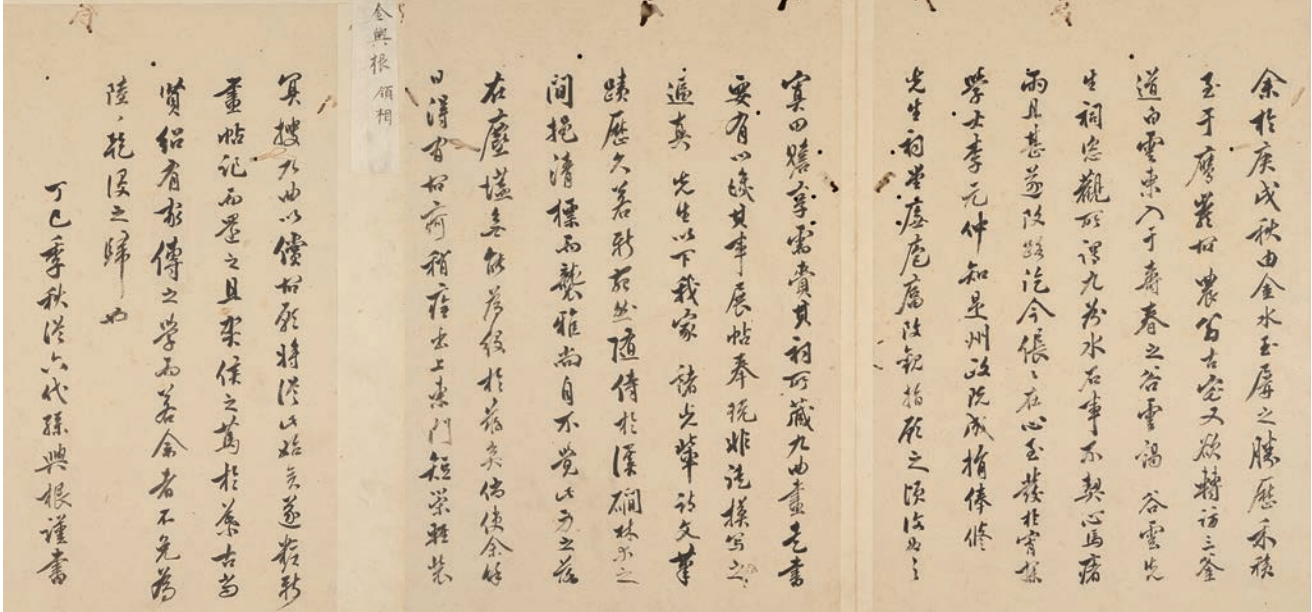 余於庚戌秋由金水玉屏之勝歷禾積
至于膺巖拜農翁古宅又欲轉訪三釜
道白雲東入于壽春之谷雲謁 谷雲先
生祠恣觀所謂九曲水石事不契心馬瘏
雨且甚遂改路迄今倀〻在心至發於宵寐
學士李元仲知是州政既成捐俸修
先生祠堂腐改觀指顧之頃
寘田贍享需賚其祠所藏九曲畫走書
要有以識其事展帖奉玩非模写之
逼真 先生以下我家 諸先輩詩文筆
蹟歷久若新宛然隨侍於溪磵林木之
間挹清標而襲雅尚自不覺此身之落
在塵壒無能為役於茲矣倘使余餘
日得宥痾稍痊出上東門短策輕裝
金興根 領相
冥搜九曲以償願將從此始矣遂粧新
畫帖記而還之且侯之篤於慕古尚
賢紹有家傳之學而若余者不免為
陸〻乾沒之歸也
丁巳季秋從六代孫興根謹書